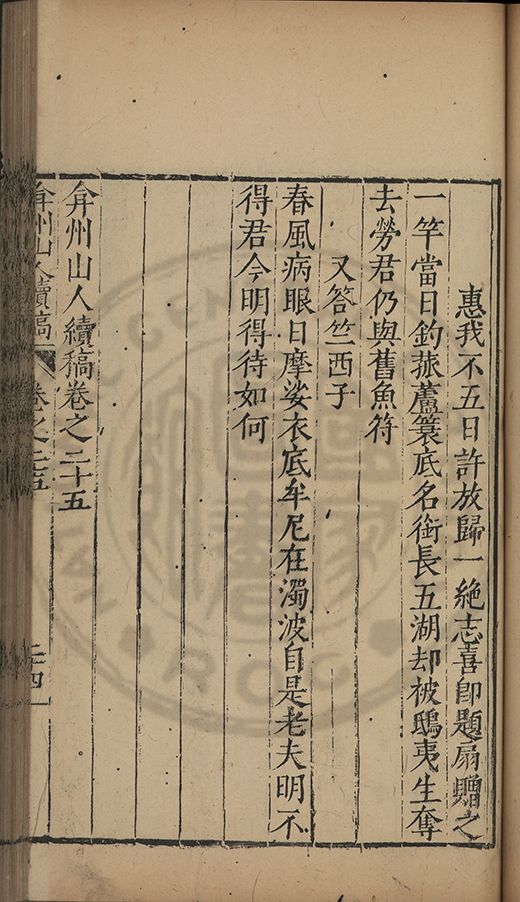 惠我不五日許放歸一絶志喜卽題扇贈之
一竿當日釣菰蘆簑底名銜長五湖却被鴟夷生奪
去勞君仍與舊魚符
又答竺西子
春風病眼日摩娑衣底牟尼在濁波自是老夫明不
得君今明得待如何
弇州山人續稿卷之二十五
弇州山人續稿 卷之二五
二十四